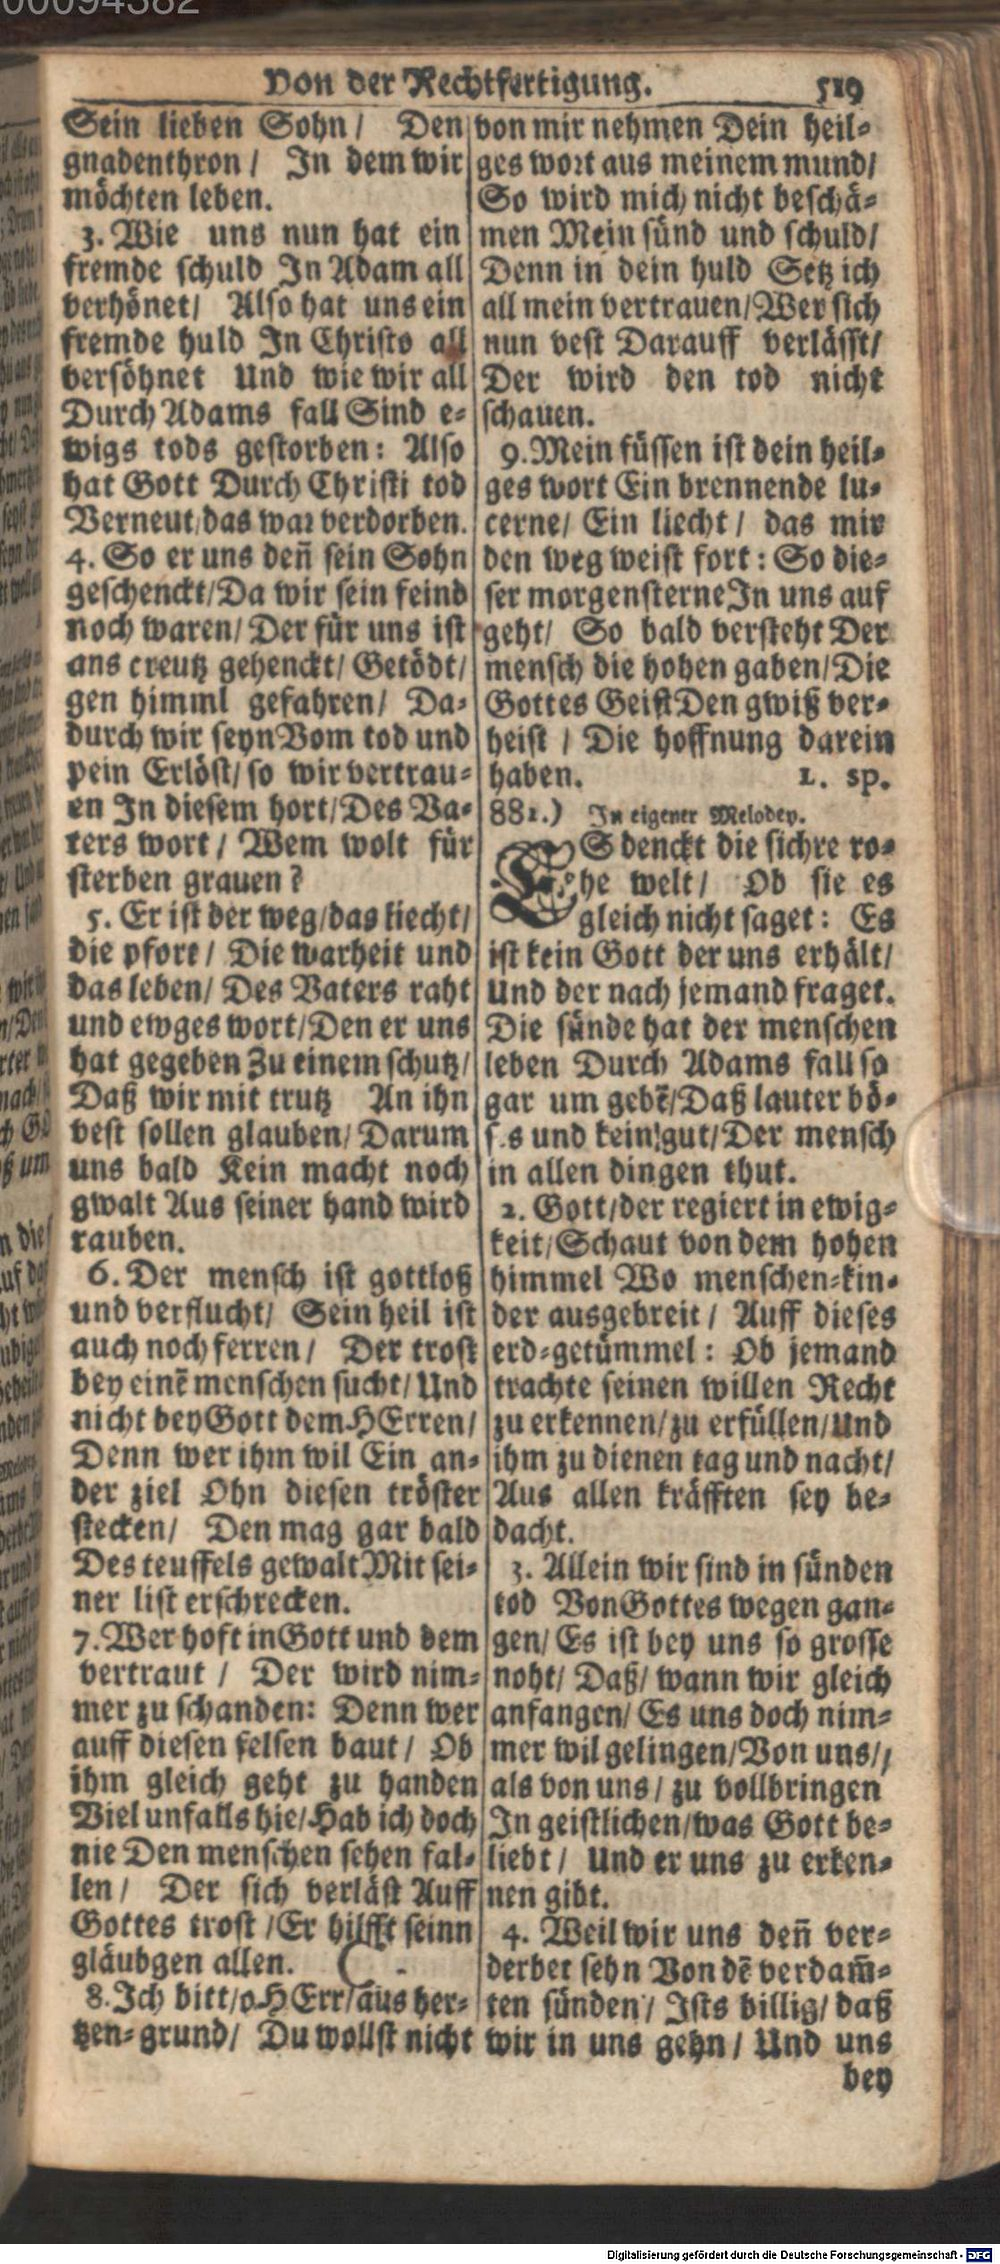 00094382
Von der Rechtfertigung. 519
Sein lieben Sohn / Den
gnadenthron / In dem wir
möchten leben.
3. Wie uns nun hat ein
fremde schuld In Adam all
verhönet / Also hat uns ein
fremde huld In Christo all
versöhnet Und wie wir all
Durch Adams fall Sind e-
wigs tods gestorben: Also
hat Gott Durch Christi tod
Verneut / das war verdorben.
4. So er uns deñ sein Sohn
geschenckt / Da wir sein feind
noch waren / Der für uns ist
ans creutz gehenckt / Getödt /
gen himml gefahren / Da-
durch wir seyn Vom tod und
pein Erlöst / so wir vertrau-
en In diesem hort / Des Va-
ters wort / Wem wolt für
sterben grauen?
5. Er ist der weg / das liecht /
die pfort / Die warheit und
das leben / Des Vaters raht
und ewges wort / Den er uns
hat gegeben Zu einem schutz /
Daß wir mit trutz An ihn
vest sollen glauben / Darum
uns bald Kein macht noch
gwalt Aus seiner hand wird
rauben.
6. Der mensch ist gottloß
und verflucht / Sein heil ist
auch noch ferren / Der trost
bey einē menschen sucht / Und
nicht bey Gott dem HErren /
Denn wer ihm wil Ein an-
der ziel Ohn diesen tröster
stecken / Den mag gar bald
Des teuffels gewalt Mit sei-
ner list erschrecken.
7. Wer hoft in Gott und dem
vertraut / Der wird nim-
mer zu schanden: Denn wer
auff diesen felsen baut / Ob
ihm gleich geht zu handen
Viel unfalls hie / Hab ich doch
nie Den menschen sehen fal-
len / Der sich verläst Auff
Gottes trost / Er hilfft seinn
gläubgen allen.
8. Ich bitt / o HErr / aus her-
tzen-grund / Du wollst nicht
von mir nehmen Dein heil-
ges wort aus meinem mund /
So wird mich nicht beschä-
men Mein sünd und schuld /
Denn in dein huld Setz ich
all mein vertrauen / Wer sich
nun vest Darauff verlässt /
Der wird den tod nicht
schauen.
9. Mein füssen ist dein heil-
ges wort Ein brennende lu-
cerne / Ein liecht / das mir
den weg weist fort: So die-
ser morgensterne In uns auf
geht / So bald versteht Der
mensch die hohen gaben / Die
Gottes Geist Den gwiß ver-
heist / Die hoffnung darein
haben. L. Sp.
881.) In eigener Melodey.
ES denckt die sichre ro-
he welt / Ob sie es
gleich nicht saget: Es
ist kein Gott der uns erhält /
Und der nach jemand fraget.
Die sünde hat der menschen
leben Durch Adams fall so
gar umgebē / Daß lauter bö-
ses und kein gut / Der mensch
in allen dingen thut.
2. Gott / der regiert in ewig-
keit / Schaut von dem hohen
himmel Wo menschen-kin-
der ausgebreit / Auff dieses
erd-getümmel: Ob jemand
trachte seinen willen Recht
zu erkennen / zu erfüllen / Und
ihm zu dienen tag und nacht /
Aus allen kräfften sey be-
dacht.
3. Allein wir sind in sünden
tod Von Gottes wegen gan-
gen / Es ist bey uns so grosse
noht / Daß / wann wir gleich
anfangen / Es uns doch nim-
mer wil gelingen / Von uns / /
als von uns / zu vollbringen
In geistlichen / was Gott be-
liebt / Und er uns zu erken-
nen gibt.
4. Weil wir uns deñ ver-
derbet sehn Von dē verdam̃-
ten sünden / Ists billig / daß
wir in uns gehn / Und uns
bey
Digitalisierung gefördert durch die Deutsche Forschungsgemeinschaft - DFG